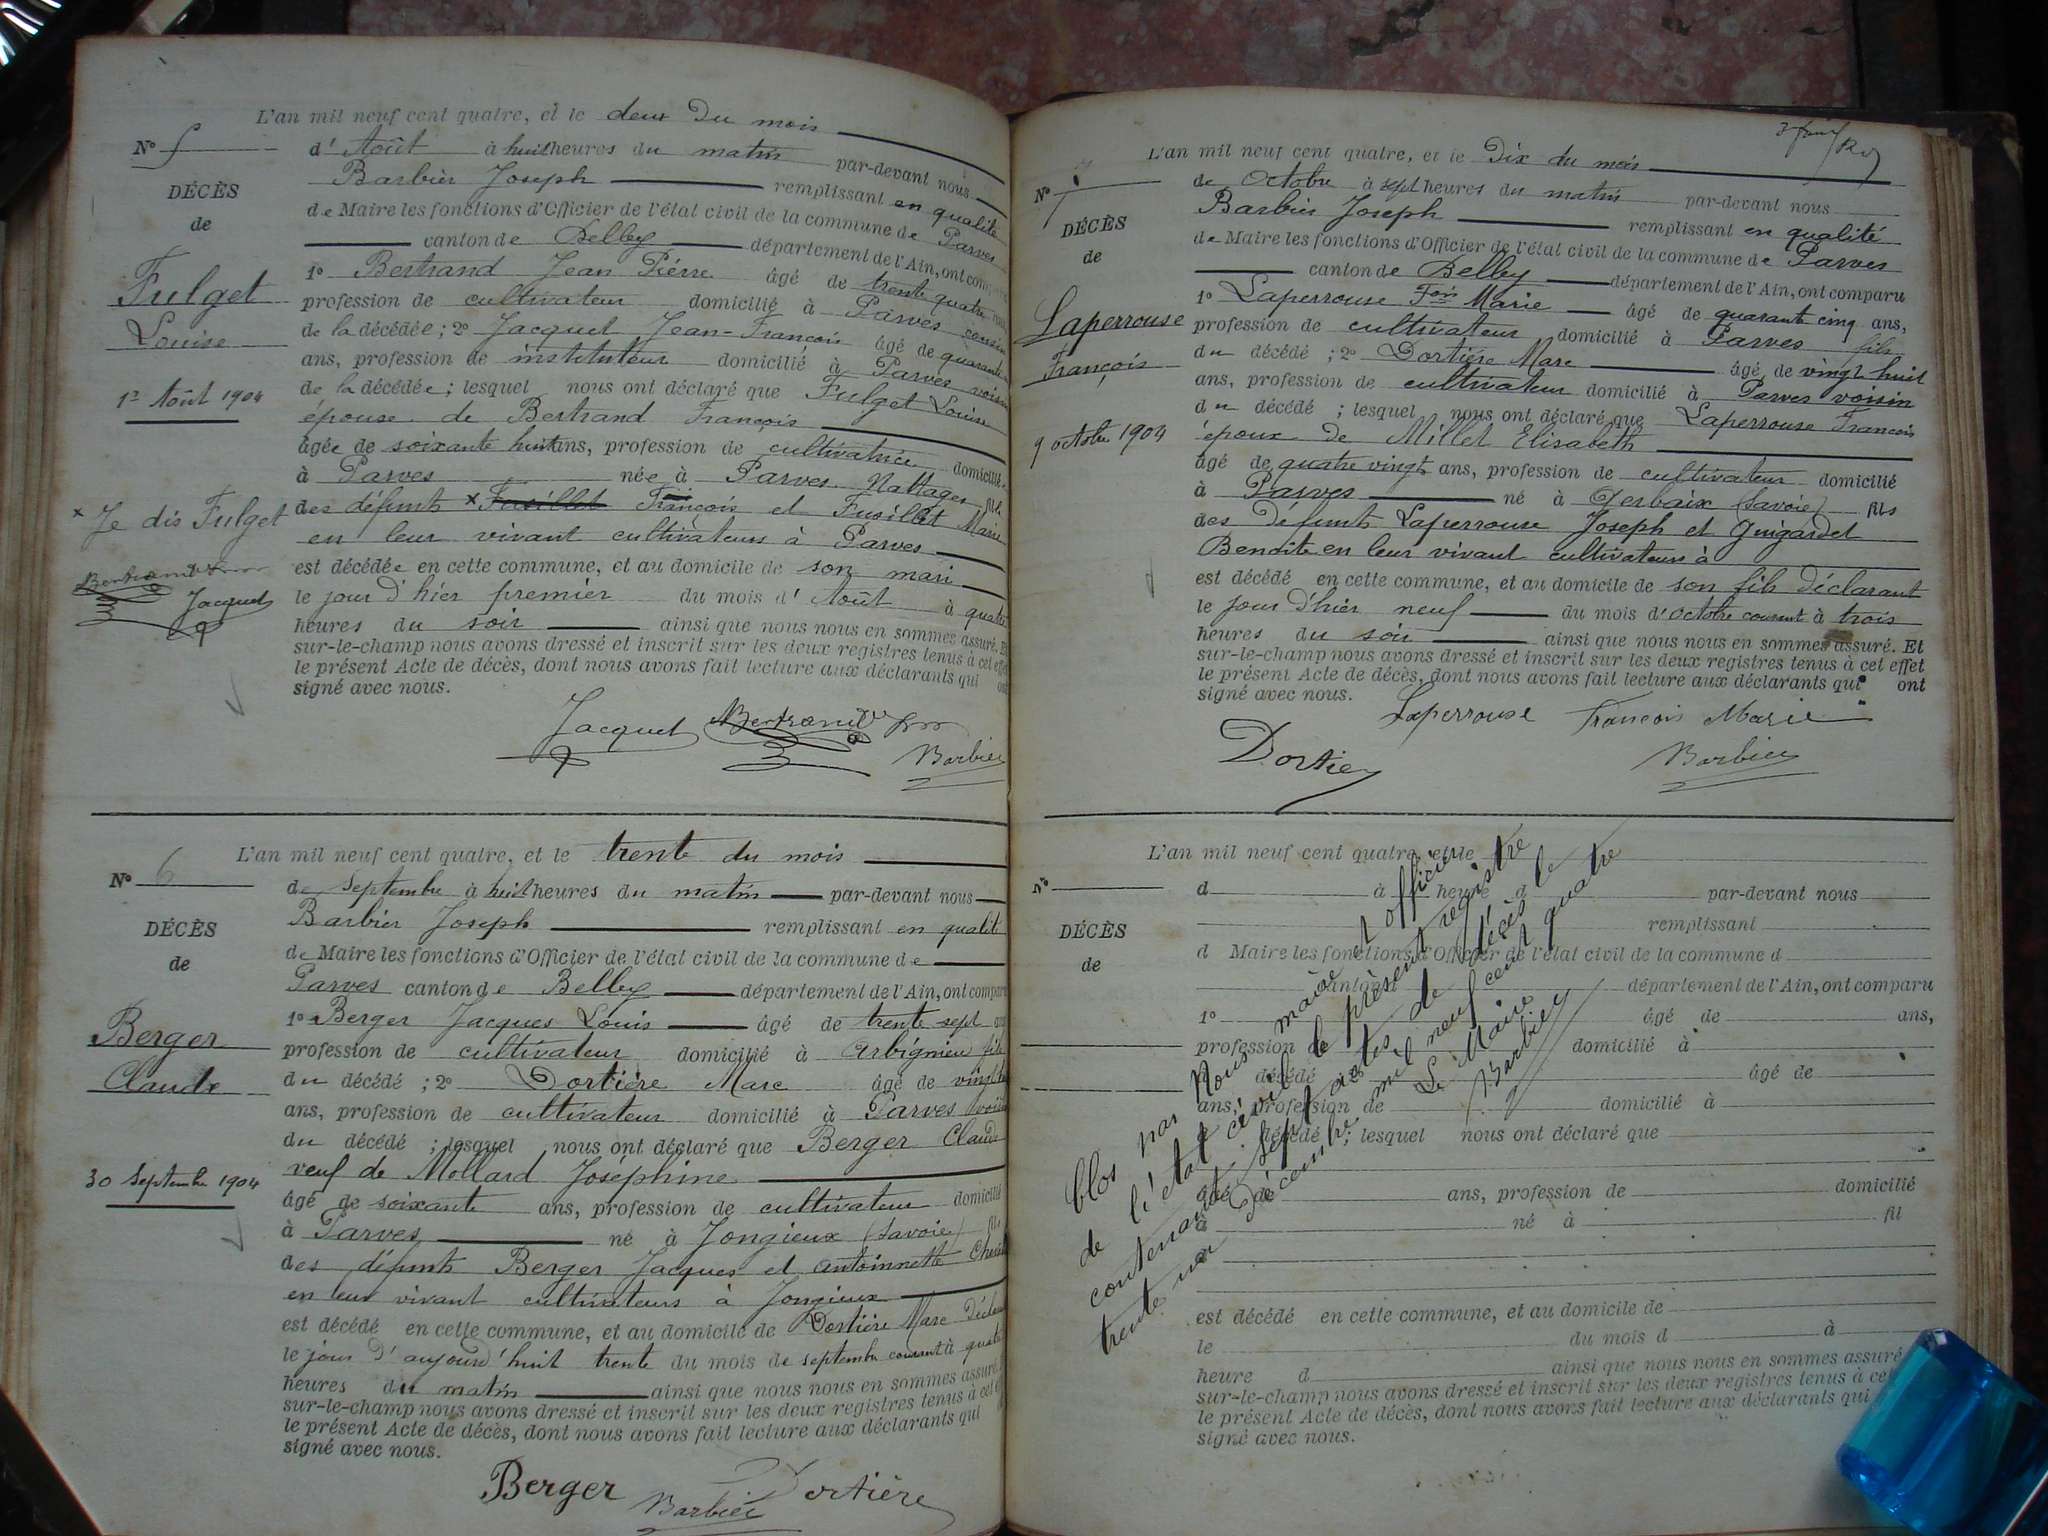 L'an mil neuf cent quatre, et le deux du mois
No 5
d'Août à huit heures du matin par-devant nous
Barbier Joseph remplissant en qualité
de Maire les fonctions d'Officier de l'état civil de la commune de Parves
canton de Belley département de l'Ain, ont comparu
1o Bertrand Jean Pierre âgé de trente quatre
profession de cultivateur domicilié à Parves cousin
de la décédée; 2o Jacquet Jean-François âgé de quarante
ans, profession de instituteur domicilié à Parves voisin
de la décédée; lesquel nous ont déclaré que Fulget Louise
épouse de Bertrand François
âgée de soixante huit ans, profession de cultivatrice domiciliée
à Parves née à Parves Nattages
des défunts x Fusillet François et Fusillet Marie
en leur vivant cultivateurs à Parves
est décédée en cette commune, et au domicile de son mari
le jour d'hier premier du mois d'Août à quatre
heures du soir ainsi que nous nous en sommes assuré. Et
sur-le-champ nous avons dressé et inscrit sur les deux registres tenus à cet effet
le présent Acte de décès, dont nous avons fait lecture aux déclarants qui ont
signé avec nous.
Jacquet Bertrand
Barbier
DÉCÈS
de
Fulget
Louise
1er Août 1904
x Je dis Fulget
Bertrand
Jacquet
L'an mil neuf cent quatre, et le trente du mois
No 6
de septembre à huit heures du matin par-devant nous
Barbier Joseph remplissant en qualité
de Maire les fonctions d'Officier de l'état civil de la commune de
Parves canton de Belley département de l'Ain, ont comparu
1o Berger Jacques Louis âgé de trente sept ans
profession de cultivateur domicilié à Arbignieu fils
du décédé; 2o Dortière Marc âgé de vingt
ans, profession de cultivateur domicilié à Parves voisin
du décédé; lesquel nous ont déclaré que Berger Claude
veuf de Mollard Joséphine
âgé de soixante ans, profession de cultivateur domicilié
à Parves né à Jongieux (Savoie) fils
des défunts Berger Jacques et Antoinnette
en leur vivant cultivateurs à Jongieux
est décédé en cette commune, et au domicile de Dortière Marc
le jour d'aujourd'huit trente du mois de septembre courant à quatre
heures du matin ainsi que nous nous en sommes assuré.
sur-le-champ nous avons dressé et inscrit sur les deux registres tenus à cet
le présent Acte de décès, dont nous avons fait lecture aux déclarants qui
signé avec nous.
Berger Dortière
Barbier
DÉCÈS
de
Berger
Claude
30 Septembre 1904
L'an mil neuf cent quatre, et le Dix du mois
No 7
de Octobre à sept heures du matin par-devant nous
Barbier Joseph remplissant en qualité
de Maire les fonctions d'Officier de l'état civil de la commune de Parves
canton de Belley département de l'Ain, ont comparu
1o Laperrouse Fois Marie âgé de quarante cinq ans,
profession de cultivateur domicilié à Parves fils
du décédé; 2o Dortière Marc âgé de vingt huit
ans, profession de cultivateur domicilié à Parves voisin
du décédé; lesquel nous ont déclaré que Laperrouse François
époux de Millet Elisabeth
âgé de quatre vingts ans, profession de cultivateur domicilié
à Parves né à Gerbaix (Savoie) fils
des défunts Laperrouse Joseph et Guigardet
Benoite en leur vivant cultivateurs à
est décédé en cette commune, et au domicile de son fils déclarant
le jour d'hier neuf du mois d'octobre courant à trois
heures du soir ainsi que nous nous en sommes assuré. Et
sur-le-champ nous avons dressé et inscrit sur les deux registres tenus à cet effet
le présent Acte de décès, dont nous avons fait lecture aux déclarants qui ont
signé avec nous.
Laperrouse François Marie
Dortier Barbier
DÉCÈS
de
Laperrouse
François
9 octobre 1904
L'an mil neuf cent quatre, et le
No
d à heure d par-devant nous
remplissant
d Maire les fonctions d'Officier de l'état civil de la commune d
canton d département de l'Ain, ont comparu
1o âgé de ans,
profession de domicilié à
décédé âgé de
ans, profession de domicilié à
décédé; lesquel nous ont déclaré que
âgé de ans, profession de domicilié
à né à fil
est décédé en cette commune, et au domicile de
le du mois d à
heure d ainsi que nous nous en sommes assuré
sur-le-champ nous avons dressé et inscrit sur les deux registres tenus à cet
le présent Acte de décès, dont nous avons fait lecture aux déclarants qui
signé avec nous.
DÉCÈS
de
Clos par Nous maire et officier
de l'état civil le présent registre
contenant sept actes de décès le
trente un décembre mil neuf cent quatre
Le Maire
Barbier